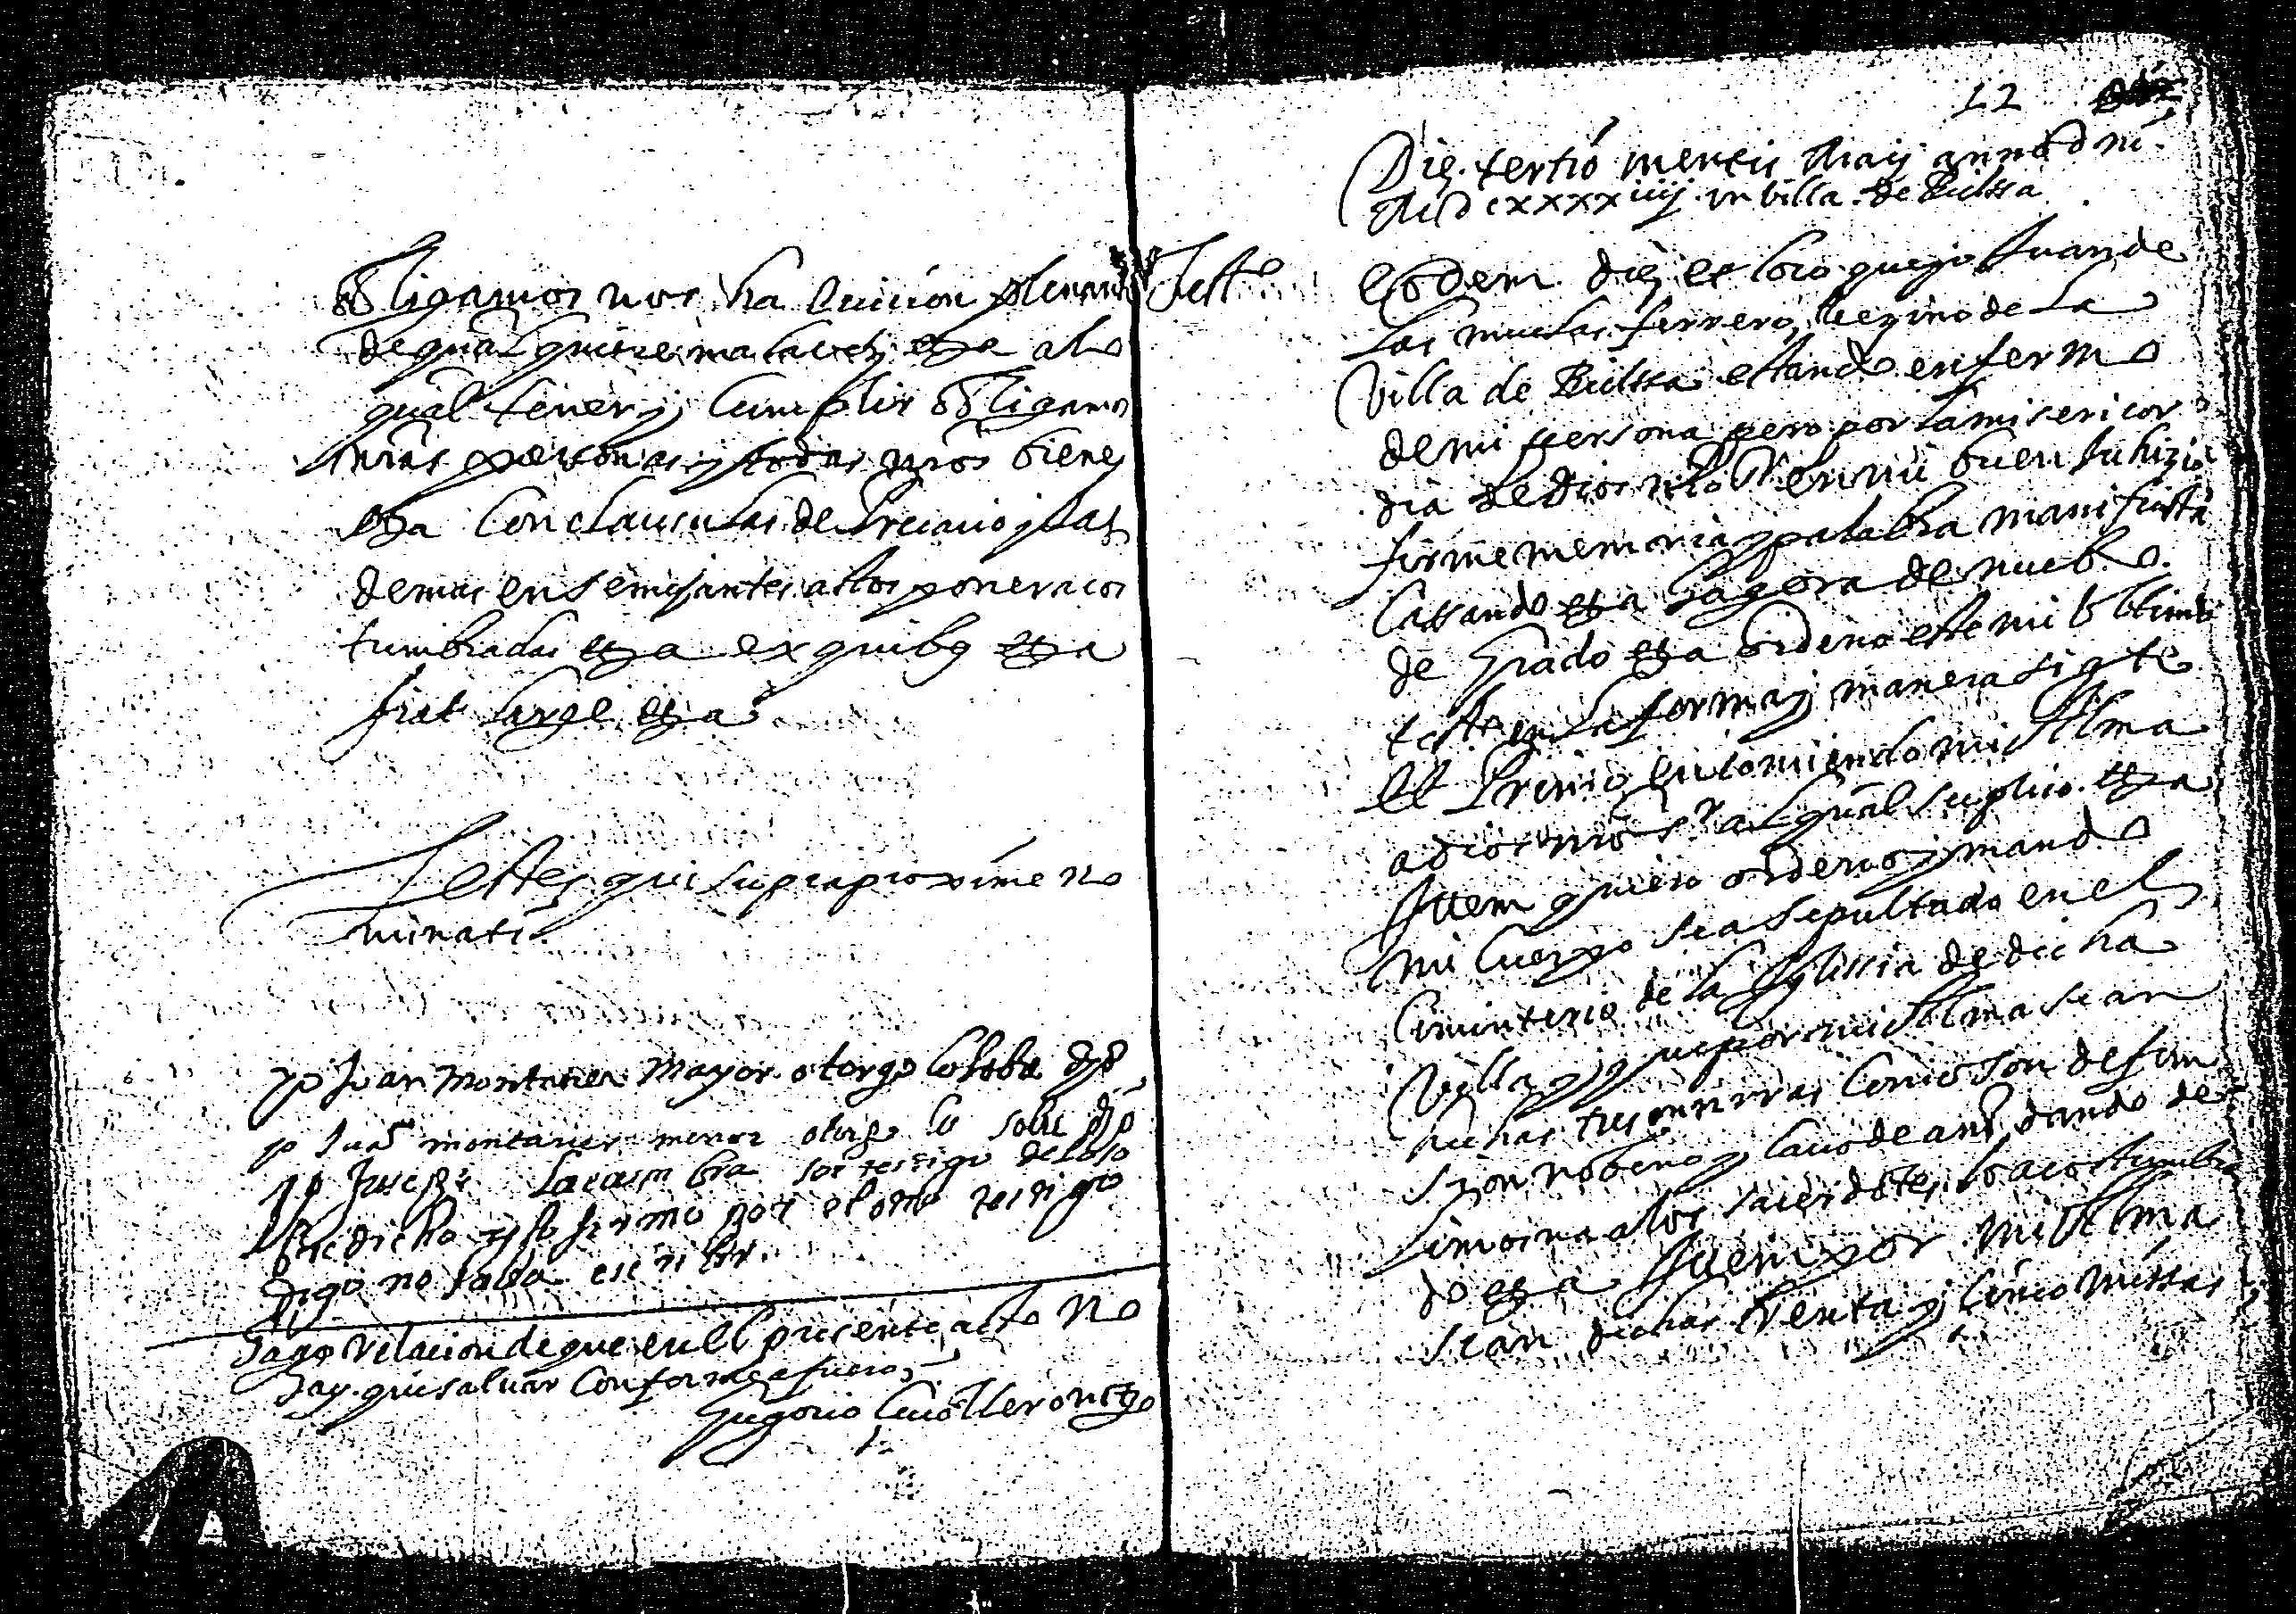 obligamos nos ha luicion plenaria
de qualquiere mala voz etza a lo
qual tener y cumplir obligamos
nras personas y todos nros bienes
etza con clausulas de Precario y las
demas en semejantes actos poner acos
tumbradas etza ex quibus etza
fiat large etza
Testes qui supra proxime no
minati.
yo Juan montaner mayor otorgo lo sobre dho
yo Juan montaner menor otorgo lo sobre dho
yo Jusepe Lacambra soi testigo de lo so
bre dicho y lo firmo por el otro testigo
digo no sabia escribir.
Hago relacion de que en el presente acto no
hay que salvar conforme a fuero,
Gregorio
12
Die tertio mensis Maij anno dni
MDCxxxxiiij in villa de
Testo
Eodem die et loco que yo Juan de
las muelas ferrero, vezino de la
villa de estando enfermo
de mi persona pero por la misericor
dia de dios nro Sr en mi buen juhizio
firme memoria y palabra manifiesta
Cassando etza Hagora de nuebo
de Grado etza ordeno este mi ultimo
testo en la forma y manera sigte
Et Primo encomiendo mi Alma
a dios nro Sr al qual suplico etza
Ittem quiero ordeno y mando
mi cuerpo sea sepultado en el
Ciminterio de la Yglessia de dicha
Villa y que por mi Alma sean
dichas tres onrras como son defun
sion nobena y cavo de año dando de
limosna a los sacerdotes lo acostumbra
do etza Ittem por mi Alma
sean dichas trenta y cinco missas